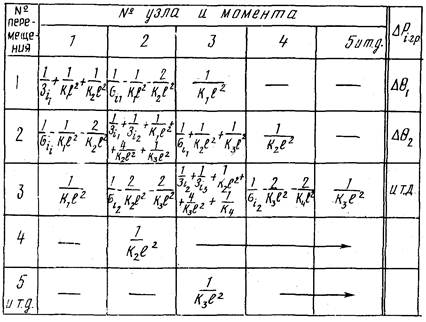 № пере- мещения
№ узла и момента
ΔP_i гр
1 2 3 4 5 и т.д.
1 | 1/3i₁ + 1/K₁l² + 1/K₂l² | 1/6i₁ - 1/K₁l² - 2/K₂l² | 1/K₁l² | — | — | Δθ₁
2 | 1/6i₁ - 1/K₁l² - 2/K₂l² | 1/3i₁ + 1/3i₂ + 1/K₁l² + 4/K₂l² + 1/K₃l² | 1/6i₁ + 1/K₂l² + 1/K₃l² | 1/K₂l² | — | Δθ₂
3 | 1/K₁l² | 1/6i₂ - 2/K₂l² - 2/K₃l² | 1/3i₂ + 1/3i₃ + 1/K₂l² + 4/K₃l² + 1/K₄ | 1/6i₂ - 2/K₃l² - 2/K₄l² | 1/K₃l² | и т.д
4 | — | 1/K₂l² | →
5 и т.д. | — | — | 1/K₃l² | →